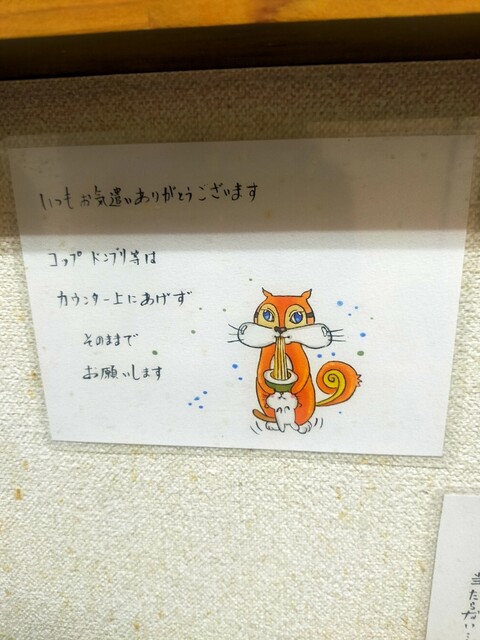 いつもお気遣いありがとうございます
コップ ドンブリ等は
カウンター上にあげず
そのままで
お願いします
当たらない…